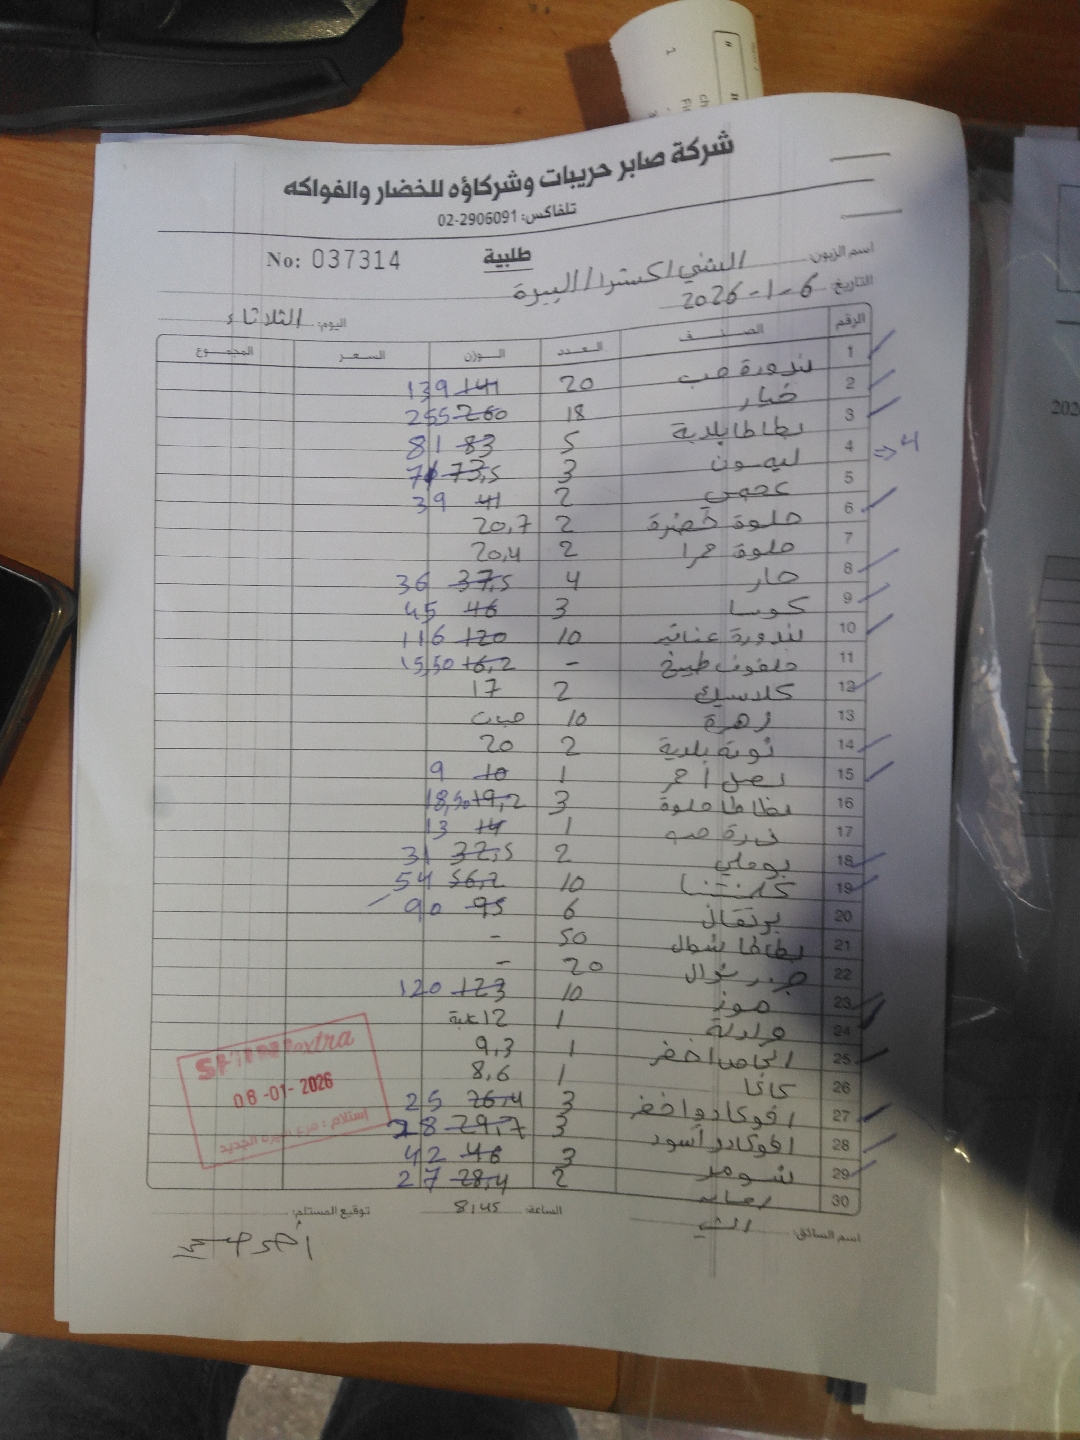 شركة صابر حريبات وشركاؤه للخضار والفواكه
تلفاكس: 02-2906091
No: 037314
طلبية
اسم الزبون: الشني اكسترا / البيرة
التاريخ: 6-1-2026
اليوم: الثلاثاء
الرقم الصنف العدد الوزن السعر المجموع
1 بندورة حب 20 141 139
2 خيار 18 260 255
3 بطاطا بلدية 5 83 81
4 ليمون 3 73,5 71
4
5 عجمي 2 41 39
6 حلوة خضرة 2 20,7
7 حلوة حمرا 2 20,4
8 حار 4 37,5 36
9 كوسا 3 46 45
10 بندورة عناقيد 10 120 116
11 ملفوف طبيخ - 16,2 15,50
12 كلاسيك 2 17
13 زهرة 10 حبات
14 تومة بلدية 2 20
15 بصل أحمر 1 10 9
16 بطاطا حلوة 3 19,2 18,50
17 ذرة حب 1 14 13
18 بوملي 2 32,5 31
19 كلمنتينا 10 56,2 54
20 برتقال 6 95 90
21 بطاطا شوال 50 -
22 جزر شوال 20 -
23 موز 10 123 120
24 1 12 علبة
25 انجاص اخضر 1 9,3
26 كاكا 1 8,6
27 افوكادو اخضر 3 26,4 25
28 افوكادو أسود 3 29,7 28
29 شومر 3 46 42
30 2 28,4 27
SHINI extra
06-01-2026
إستلام : فرع البيرة الجديد
اسم السائق:
الساعة 8:45
توقيع المستلم: